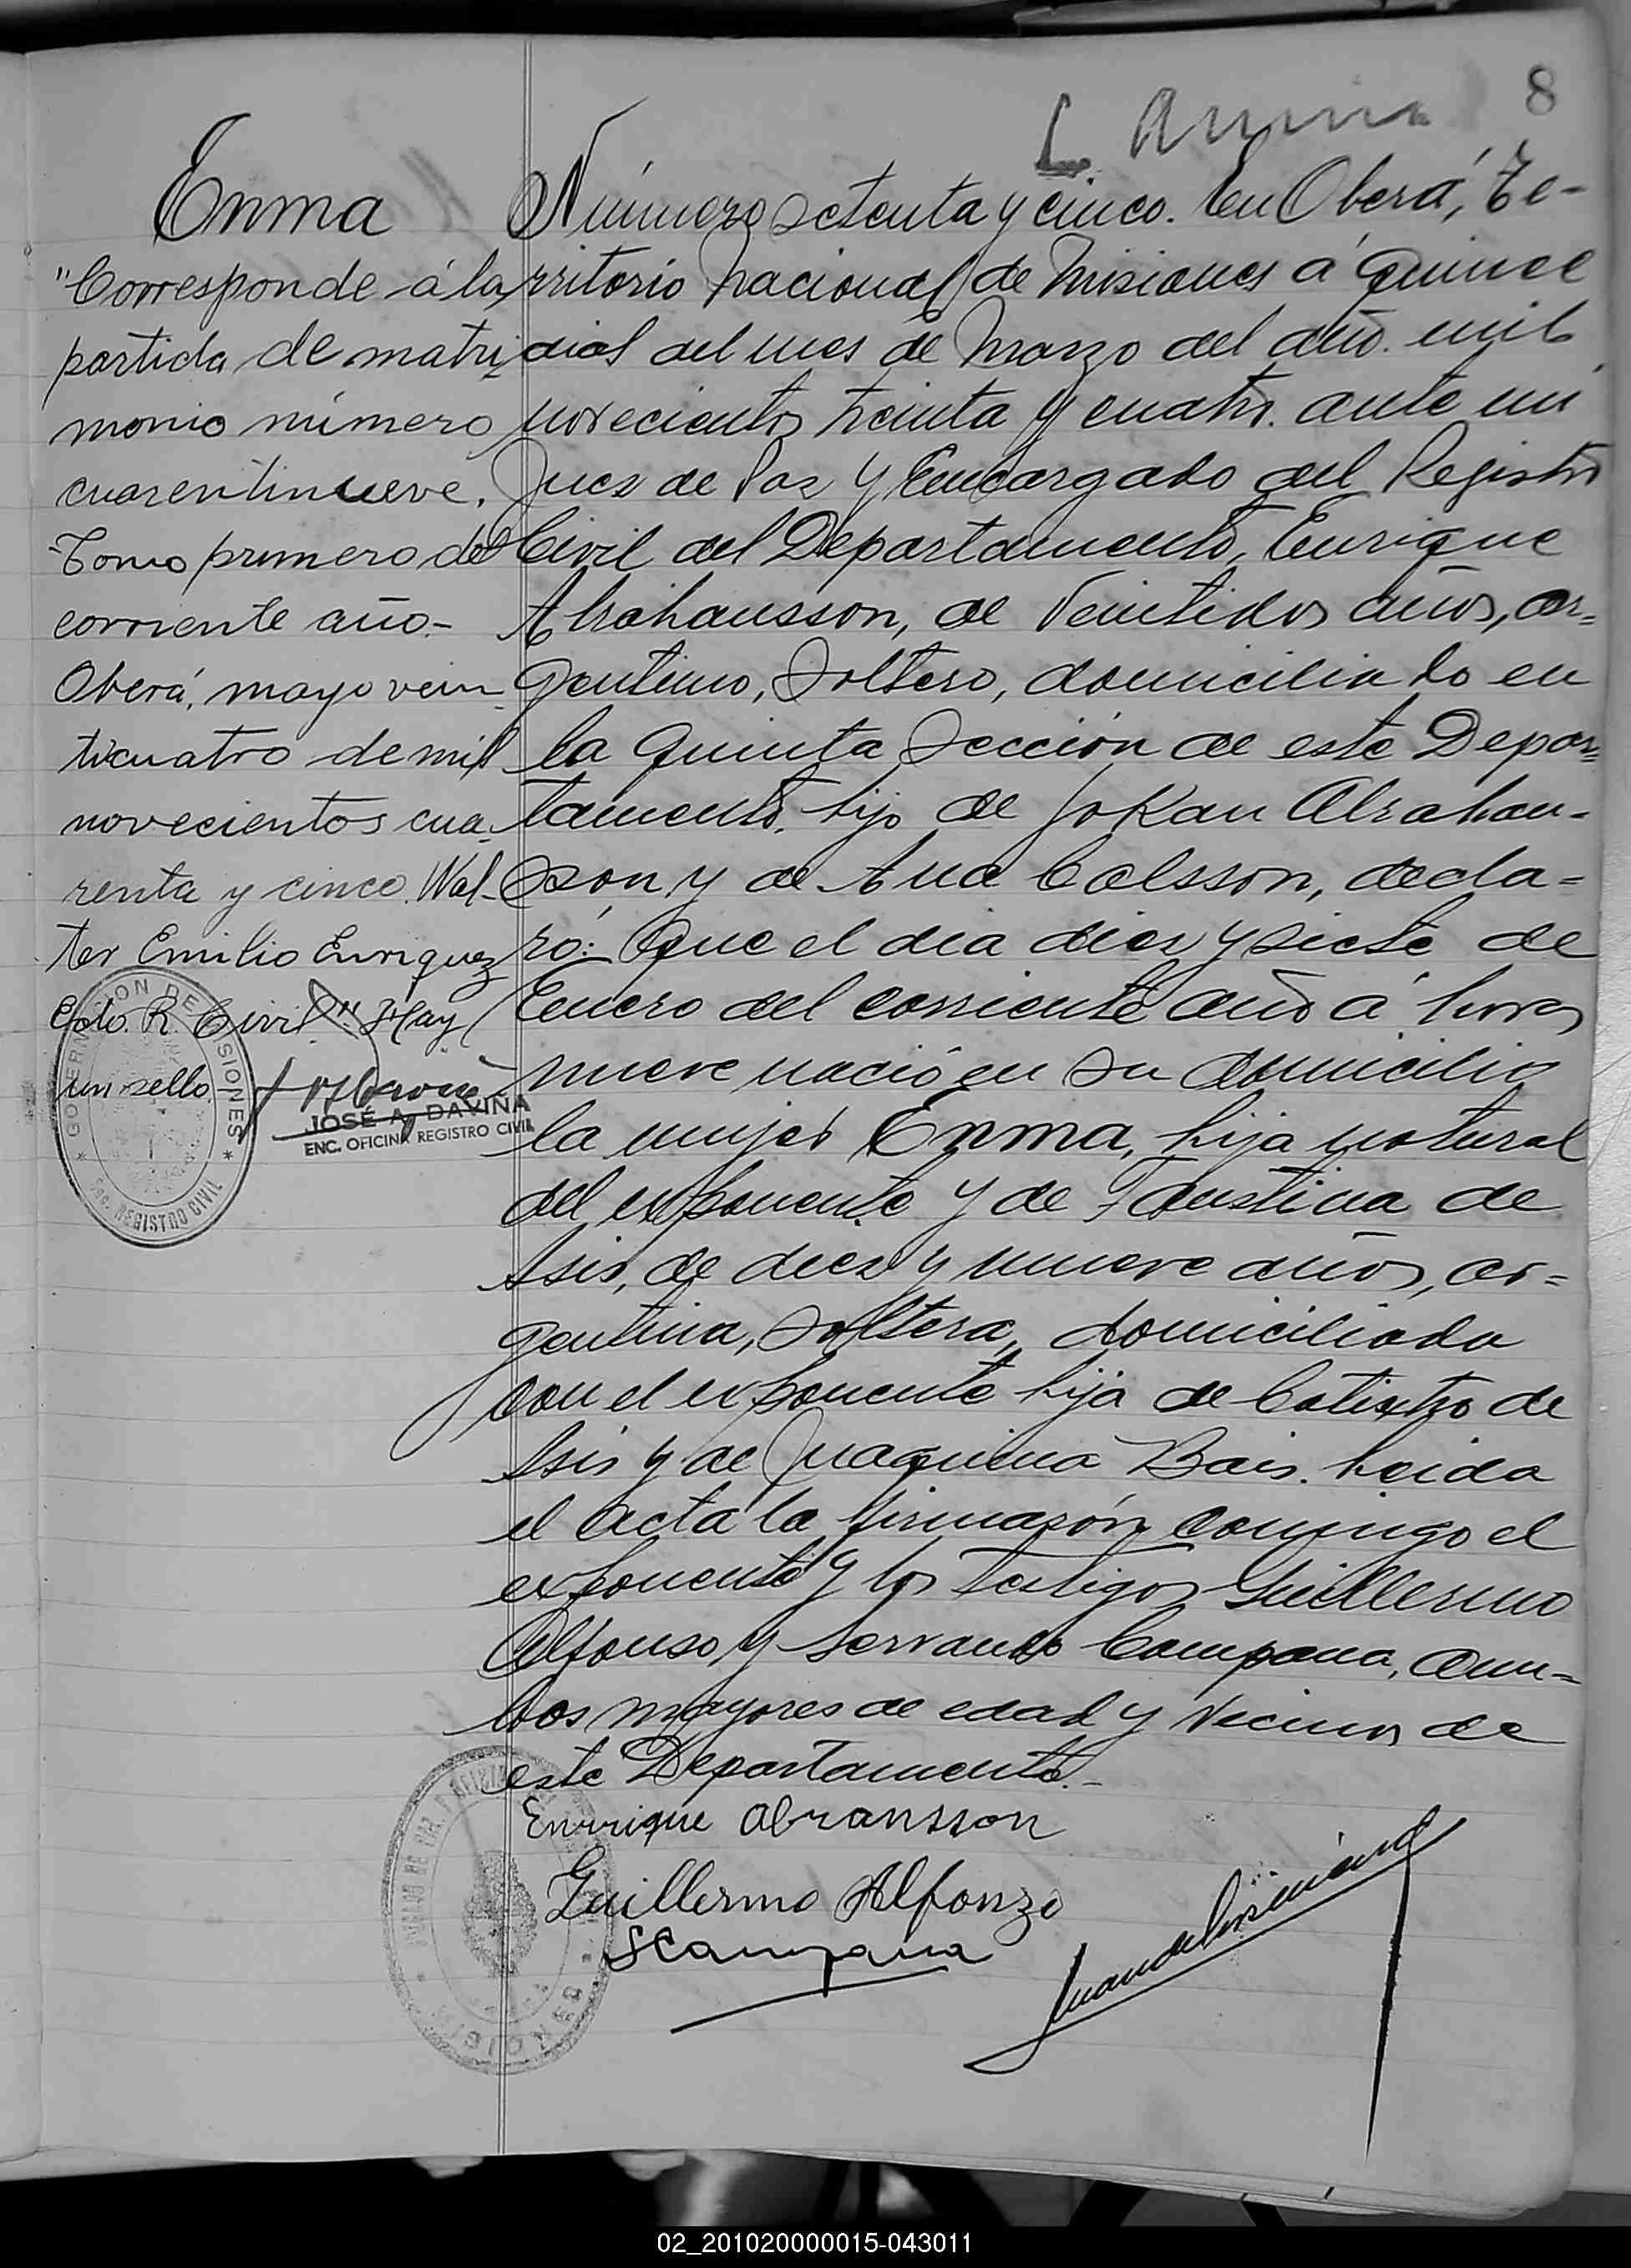 8
Enma
"Corresponde á la
partida de matri
monio número
cuarentinueve.
Tomo primero del
corriente año.-
Oberá, mayo vein
ticuatro de mil
novecientos cua
renta y cinco. Wal-
ter Emilio Enriquez
Edo. R. Civil". Hay
un sello.
JOSÉ A. DAVIÑA
ENC. OFICINA REGISTRO CIVIL
GOBERNACION DE MISIONES
REGISTRO CIVIL
Número setenta y cinco. En Oberá, Te-
rritorio Nacional de Misiones á quince
dias del mes de Marzo del año mil
novecientos treinta y cuatro. ante mi
Juez de Paz y Encargado del Registro
Civil del Departamento, Enrique
Abrahansson, de Veintidos años, ar=
gentino, Soltero, domiciliado en
la quinta Sección de este Depar=
tamento, hijo de Jokan Abrahan-
sson, y de Ana Calsson, decla=
ró: Que el dia diez y siete de
Enero del corriente año á horas
nueve nació en su domicilio
la mujer Enma, hija natural
del exponente y de Faustina de
Asis, de diez y nueve años, ar=
gentina, Soltera, domiciliada
con el exponente hija de Calistro de
Asis y de Juaquina Bais. Leida
el acta la firmarón conmigo el
exponente y los testigos Guillermo
Alfonso y Servando Campana, am=
bos mayores de edad y Vecinos de
este Departamento.-
Enrrique Abransson
Guillermo Alfonzo
SCampana
02_201020000015-043011